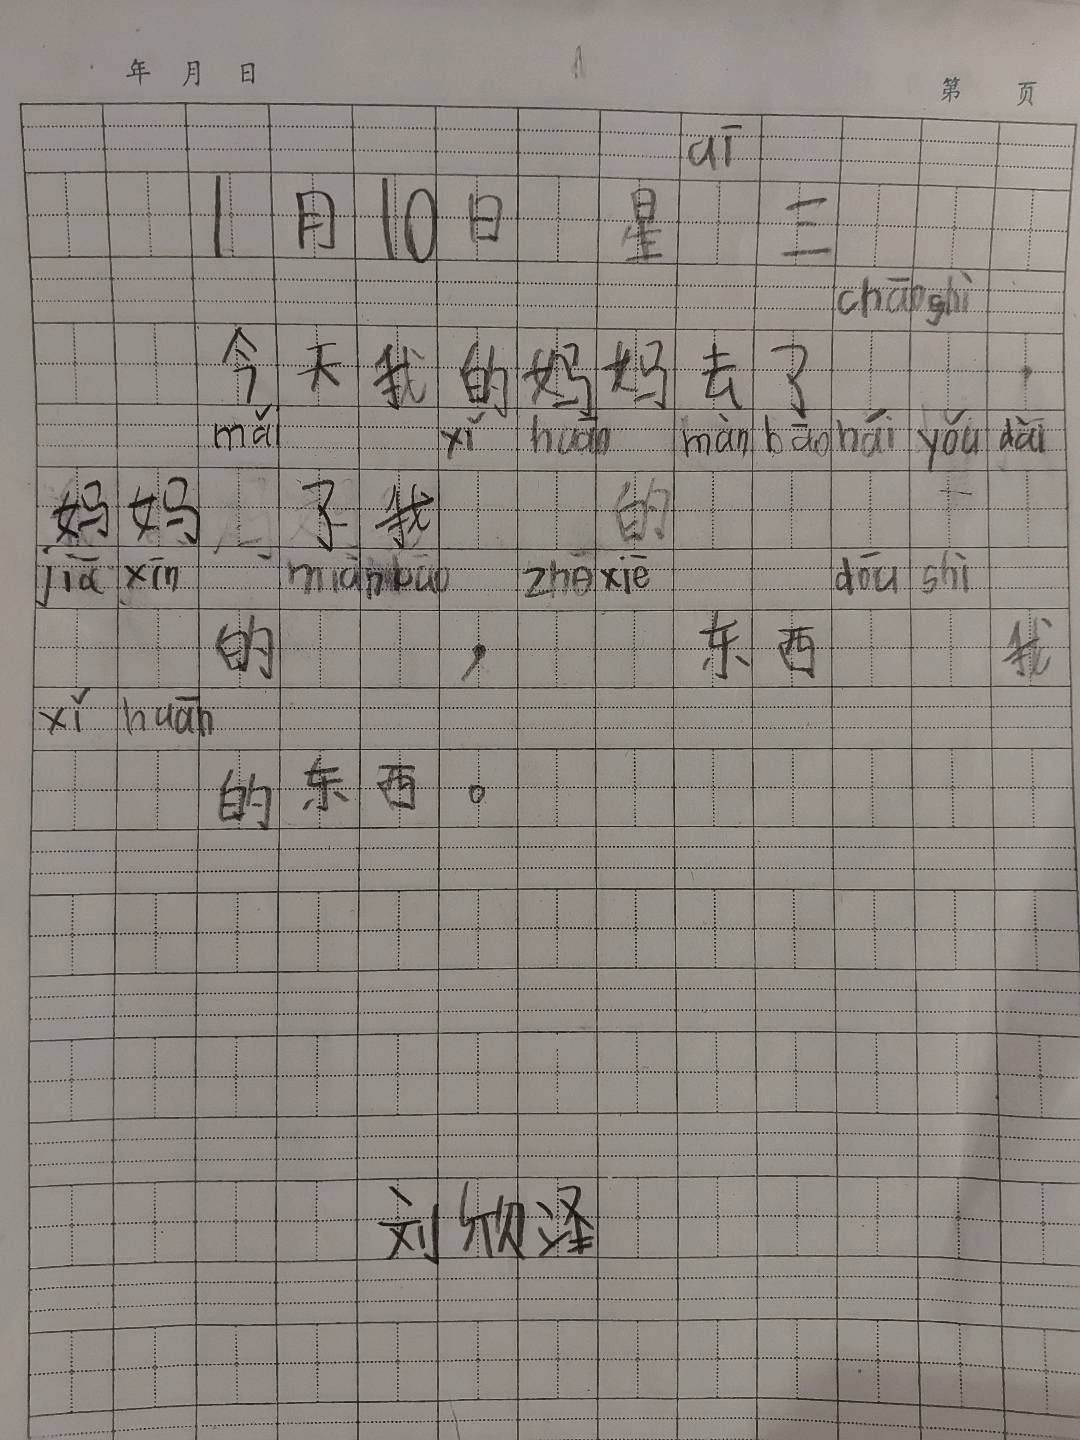 年 月 日
第 页
aī
1月10日 星 三
chāo shì
今天我的妈妈去了 ，
mǎi xǐ huān màn bāo hái yǒu dài
妈妈 了我 的
jiā xīn miàn bāo zhē xiē dōu shì
的 ， 东西 我
xǐ huān
的东西。
刘欣泽